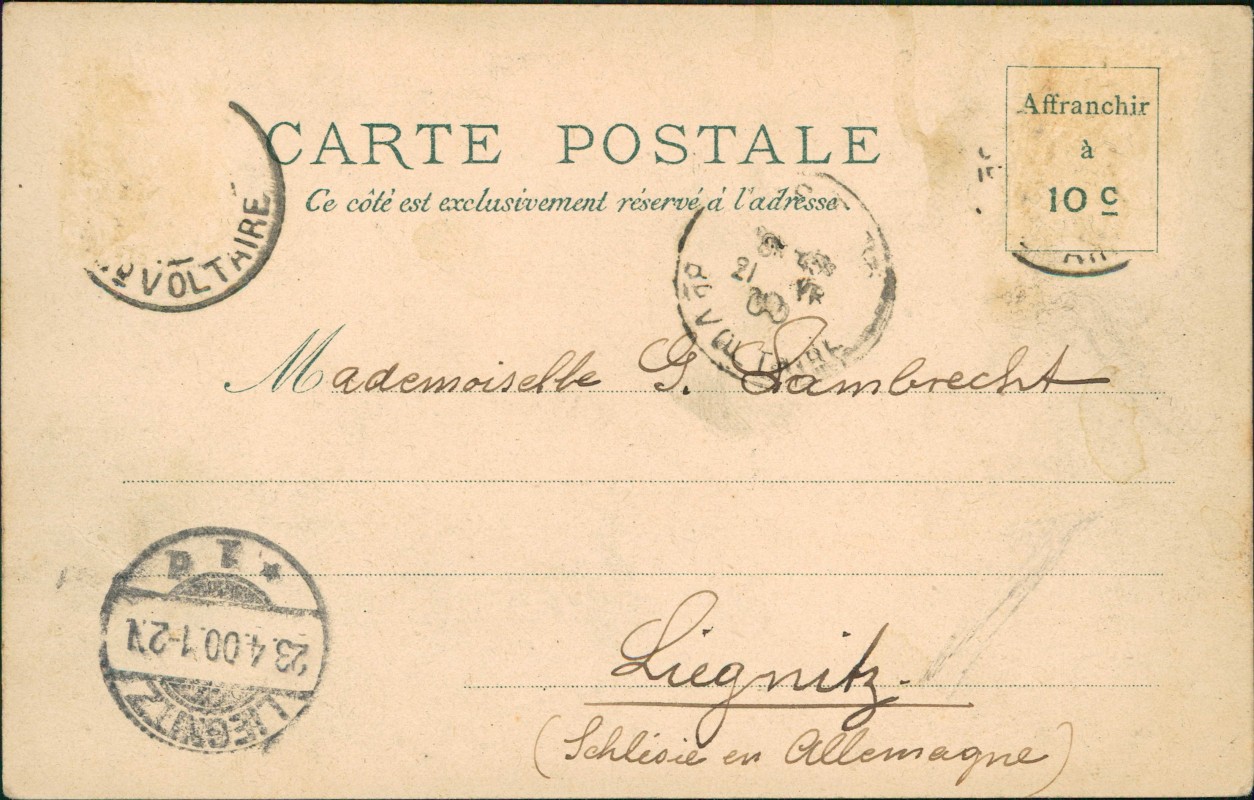 CARTE POSTALE
Ce côté est exclusivement réservé à l'adresse.
Affranchir
à
10 c
VOLTAIRE
21
00
Bd VOLTAIRE
Mademoiselle G. Lambrecht
Liegnitz.
(Schlésie en Allemagne)
LIEGNITZ
23.4.00.1-2N.